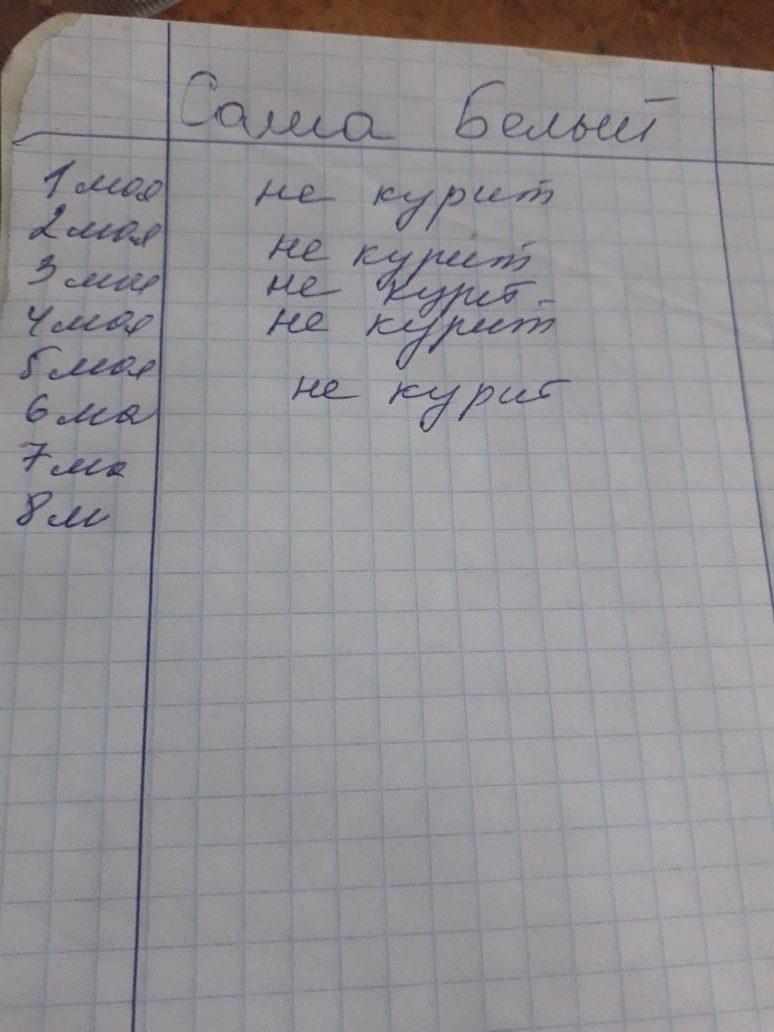 Саша Белый
1 мая не курит
2 мая не курит
3 мая не курит
4 мая не курит
5 мая
6 ма не курит
7 ма
8 м